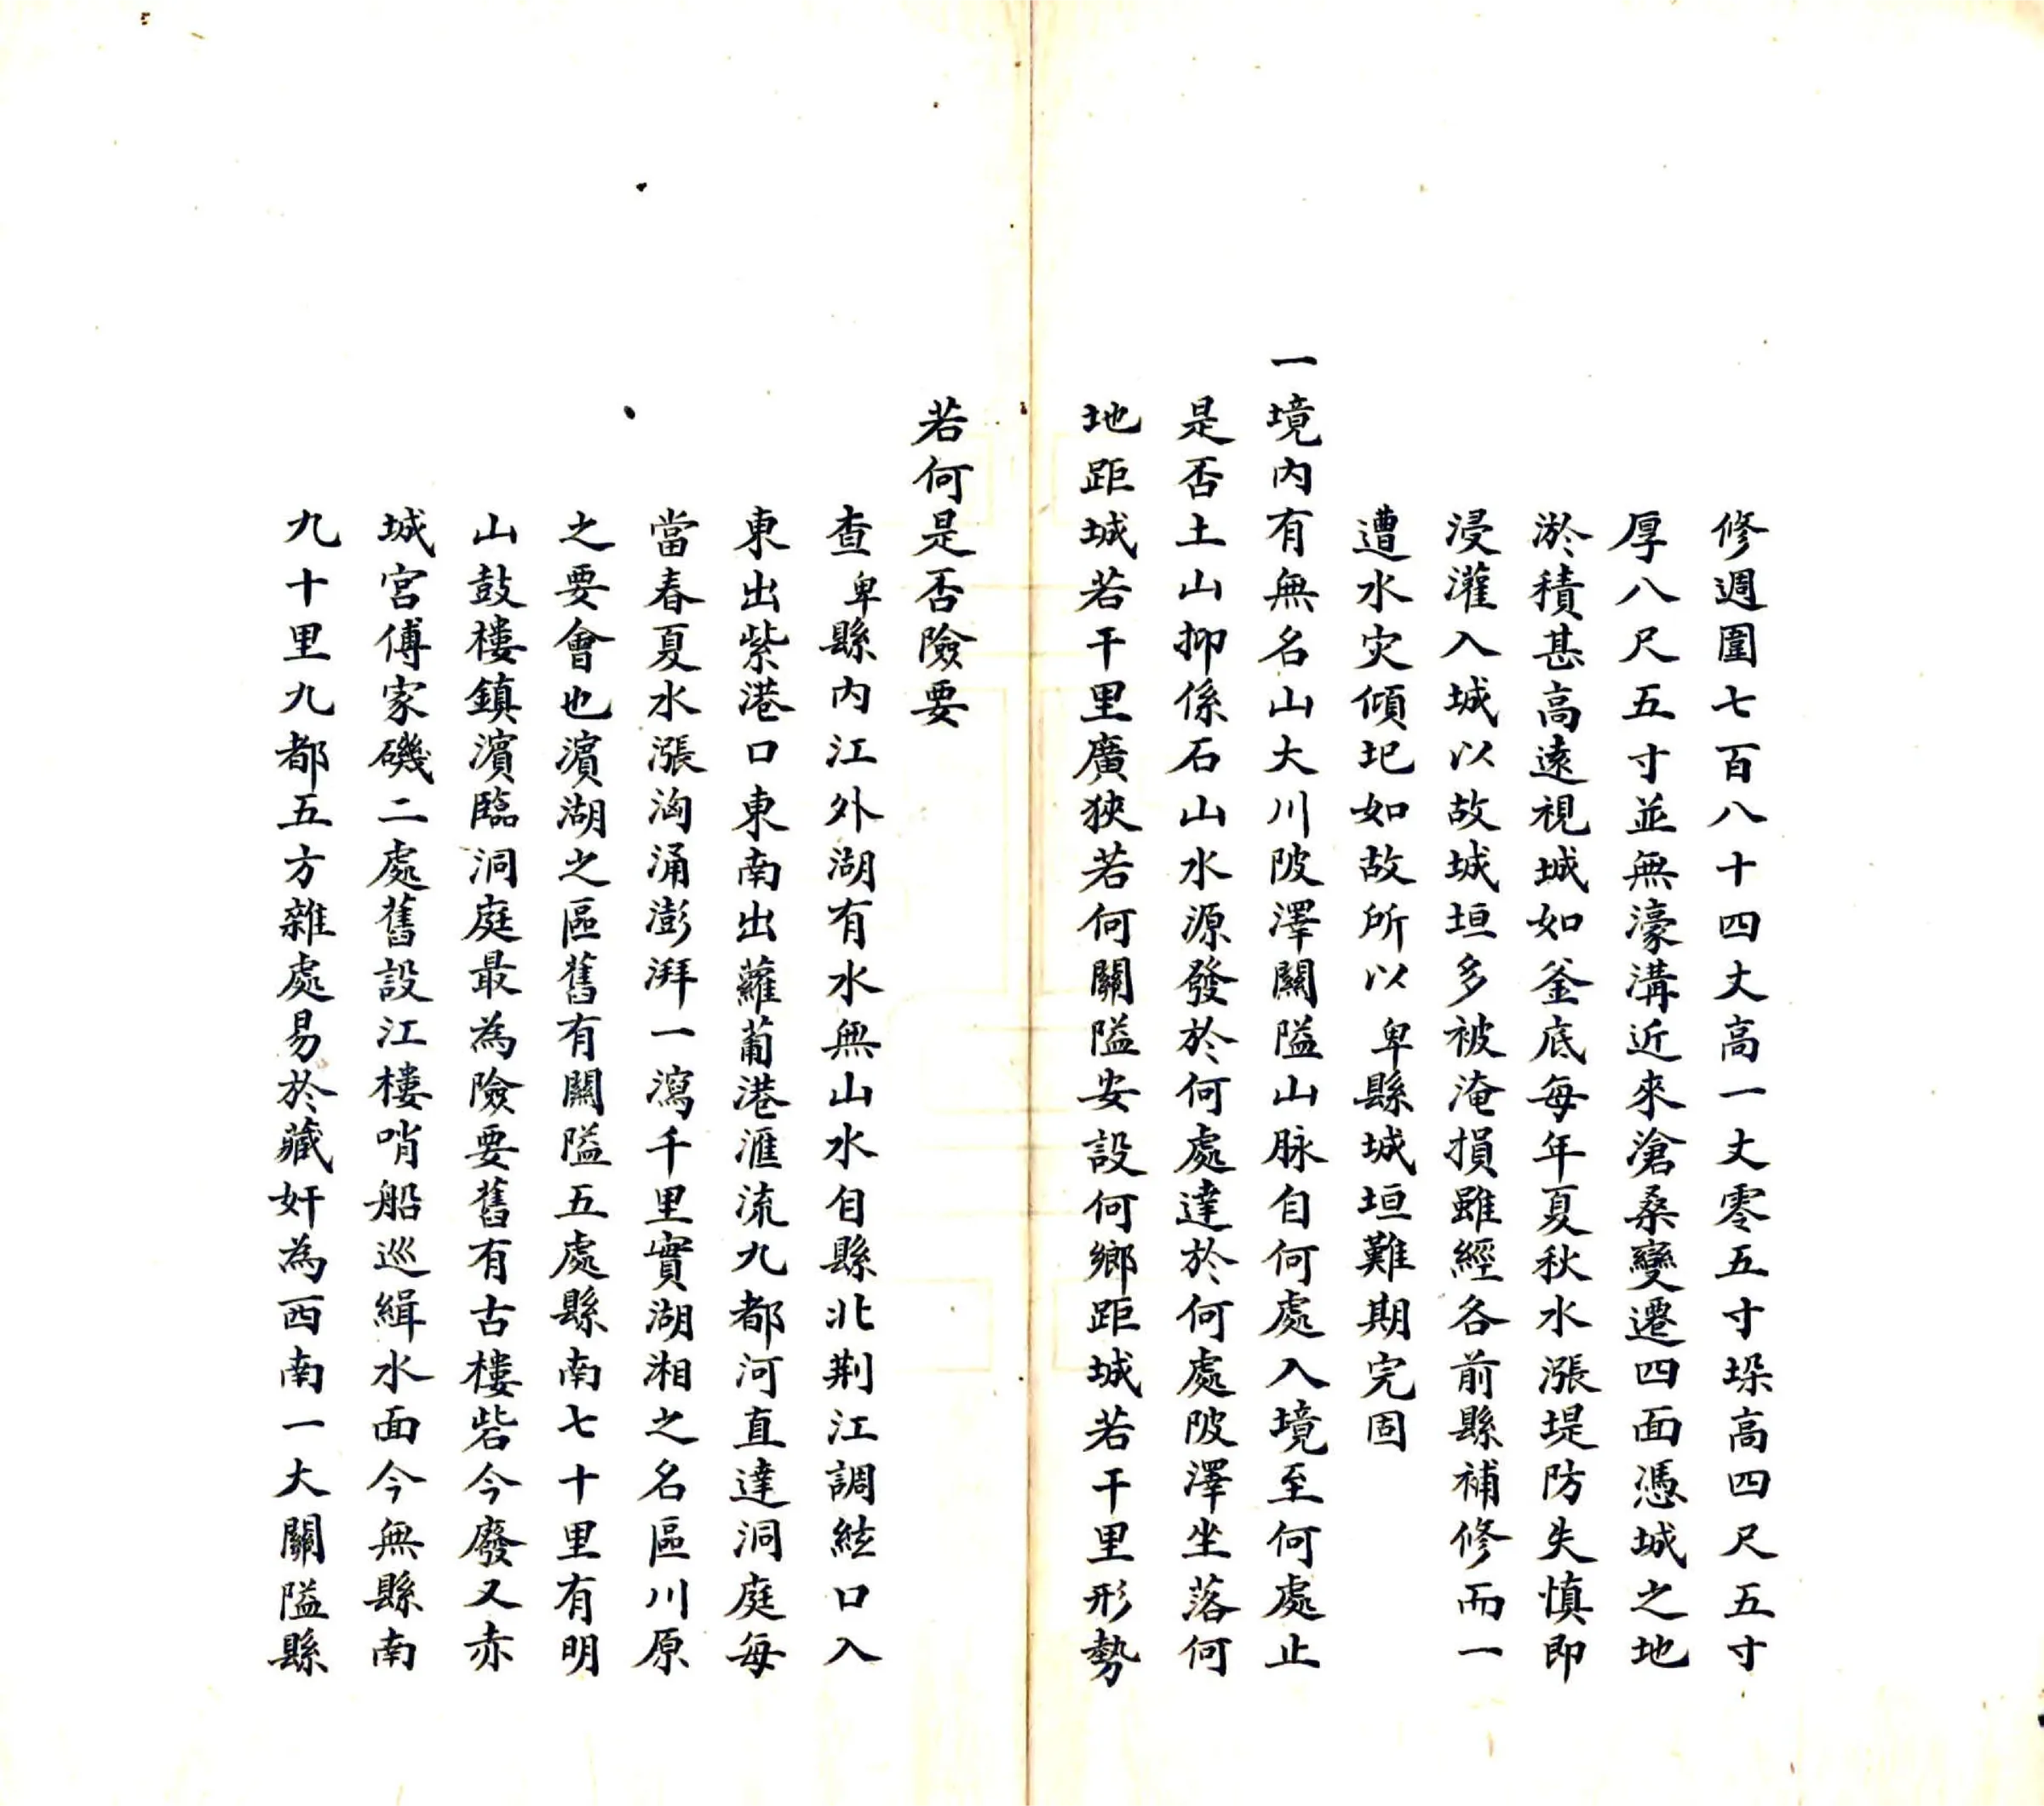 修週圍七百八十四丈高一丈零五寸垜高四尺五寸
厚八尺五寸並無濠溝近來滄桑變遷四面憑城之地
淤積甚高遠視城如釜底每年夏秋水漲堤防失慎即
浸灌入城以故城垣多被淹損雖經各前縣補修而一
遭水灾傾圯如故所以卑縣城垣難期完固
一境內有無名山大川陂澤關隘山脉自何處入境至何處止
是否土山抑係石山水源發於何處達於何處陂澤坐落何
地距城若干里廣狹若何關隘安設何鄉距城若干里形勢
若何是否險要
查卑縣內江外湖有水無山水自縣北荆江調絃口入
東出紫港口東南出蘿蔔港滙流九都河直達洞庭每
當春夏水漲洶涌澎湃一瀉千里實湖湘之名區川原
之要會也濱湖之區舊有關隘五處縣南七十里有明
山鼓樓鎮濱臨洞庭最為險要舊有古樓砦今廢又赤
城宮傅家磯二處舊設江樓哨船巡緝水面今無縣南
九十里九都五方雜處易於藏奸為西南一大關隘縣